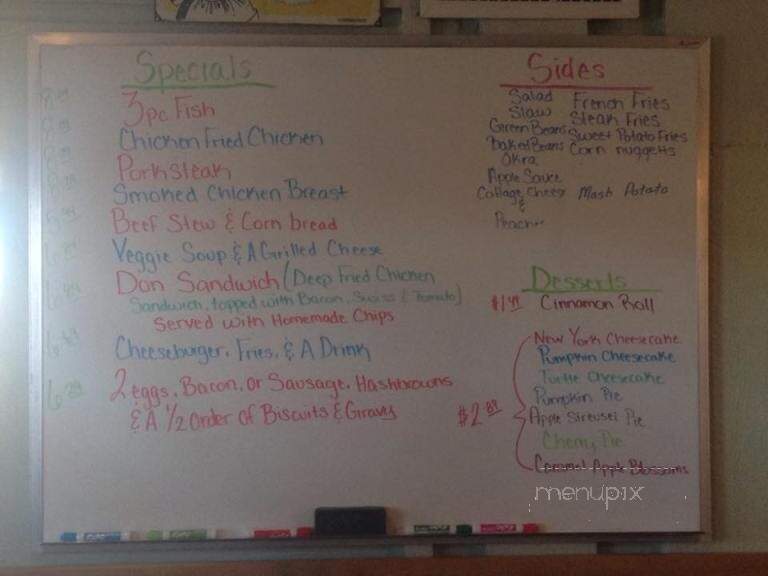 Specials
3pc Fish
Chicken Fried Chicken
Porksteak
Smoked Chicken Breast
Beef Stew & Corn bread
Veggie Soup & A Grilled Cheese
Don Sandwich (Deep Fried Chicken
Sandwich, topped with Bacon, Swiss & Tomato)
Served with Homemade Chips
Cheeseburger, Fries, & A Drink
2 eggs, Bacon, or Sausage, Hashbrowns
& A 1/2 Order of Biscuits & Gravy
Sides
Salad French Fries
Slaw Steak Fries
Green Beans Sweet Potato Fries
Baked Beans Corn nuggetts
Okra
Apple Sauce
Cottage Cheese Mash Potato
&
Peaches
Desserts
Cinnamon Roll
New York Cheesecake
Pumpkin Cheesecake
Turtle Cheesecake
$2.89
Pumpkin Pie
Apple Streusel Pie
Cherry Pie
Caramel Apple Blossoms
menupix